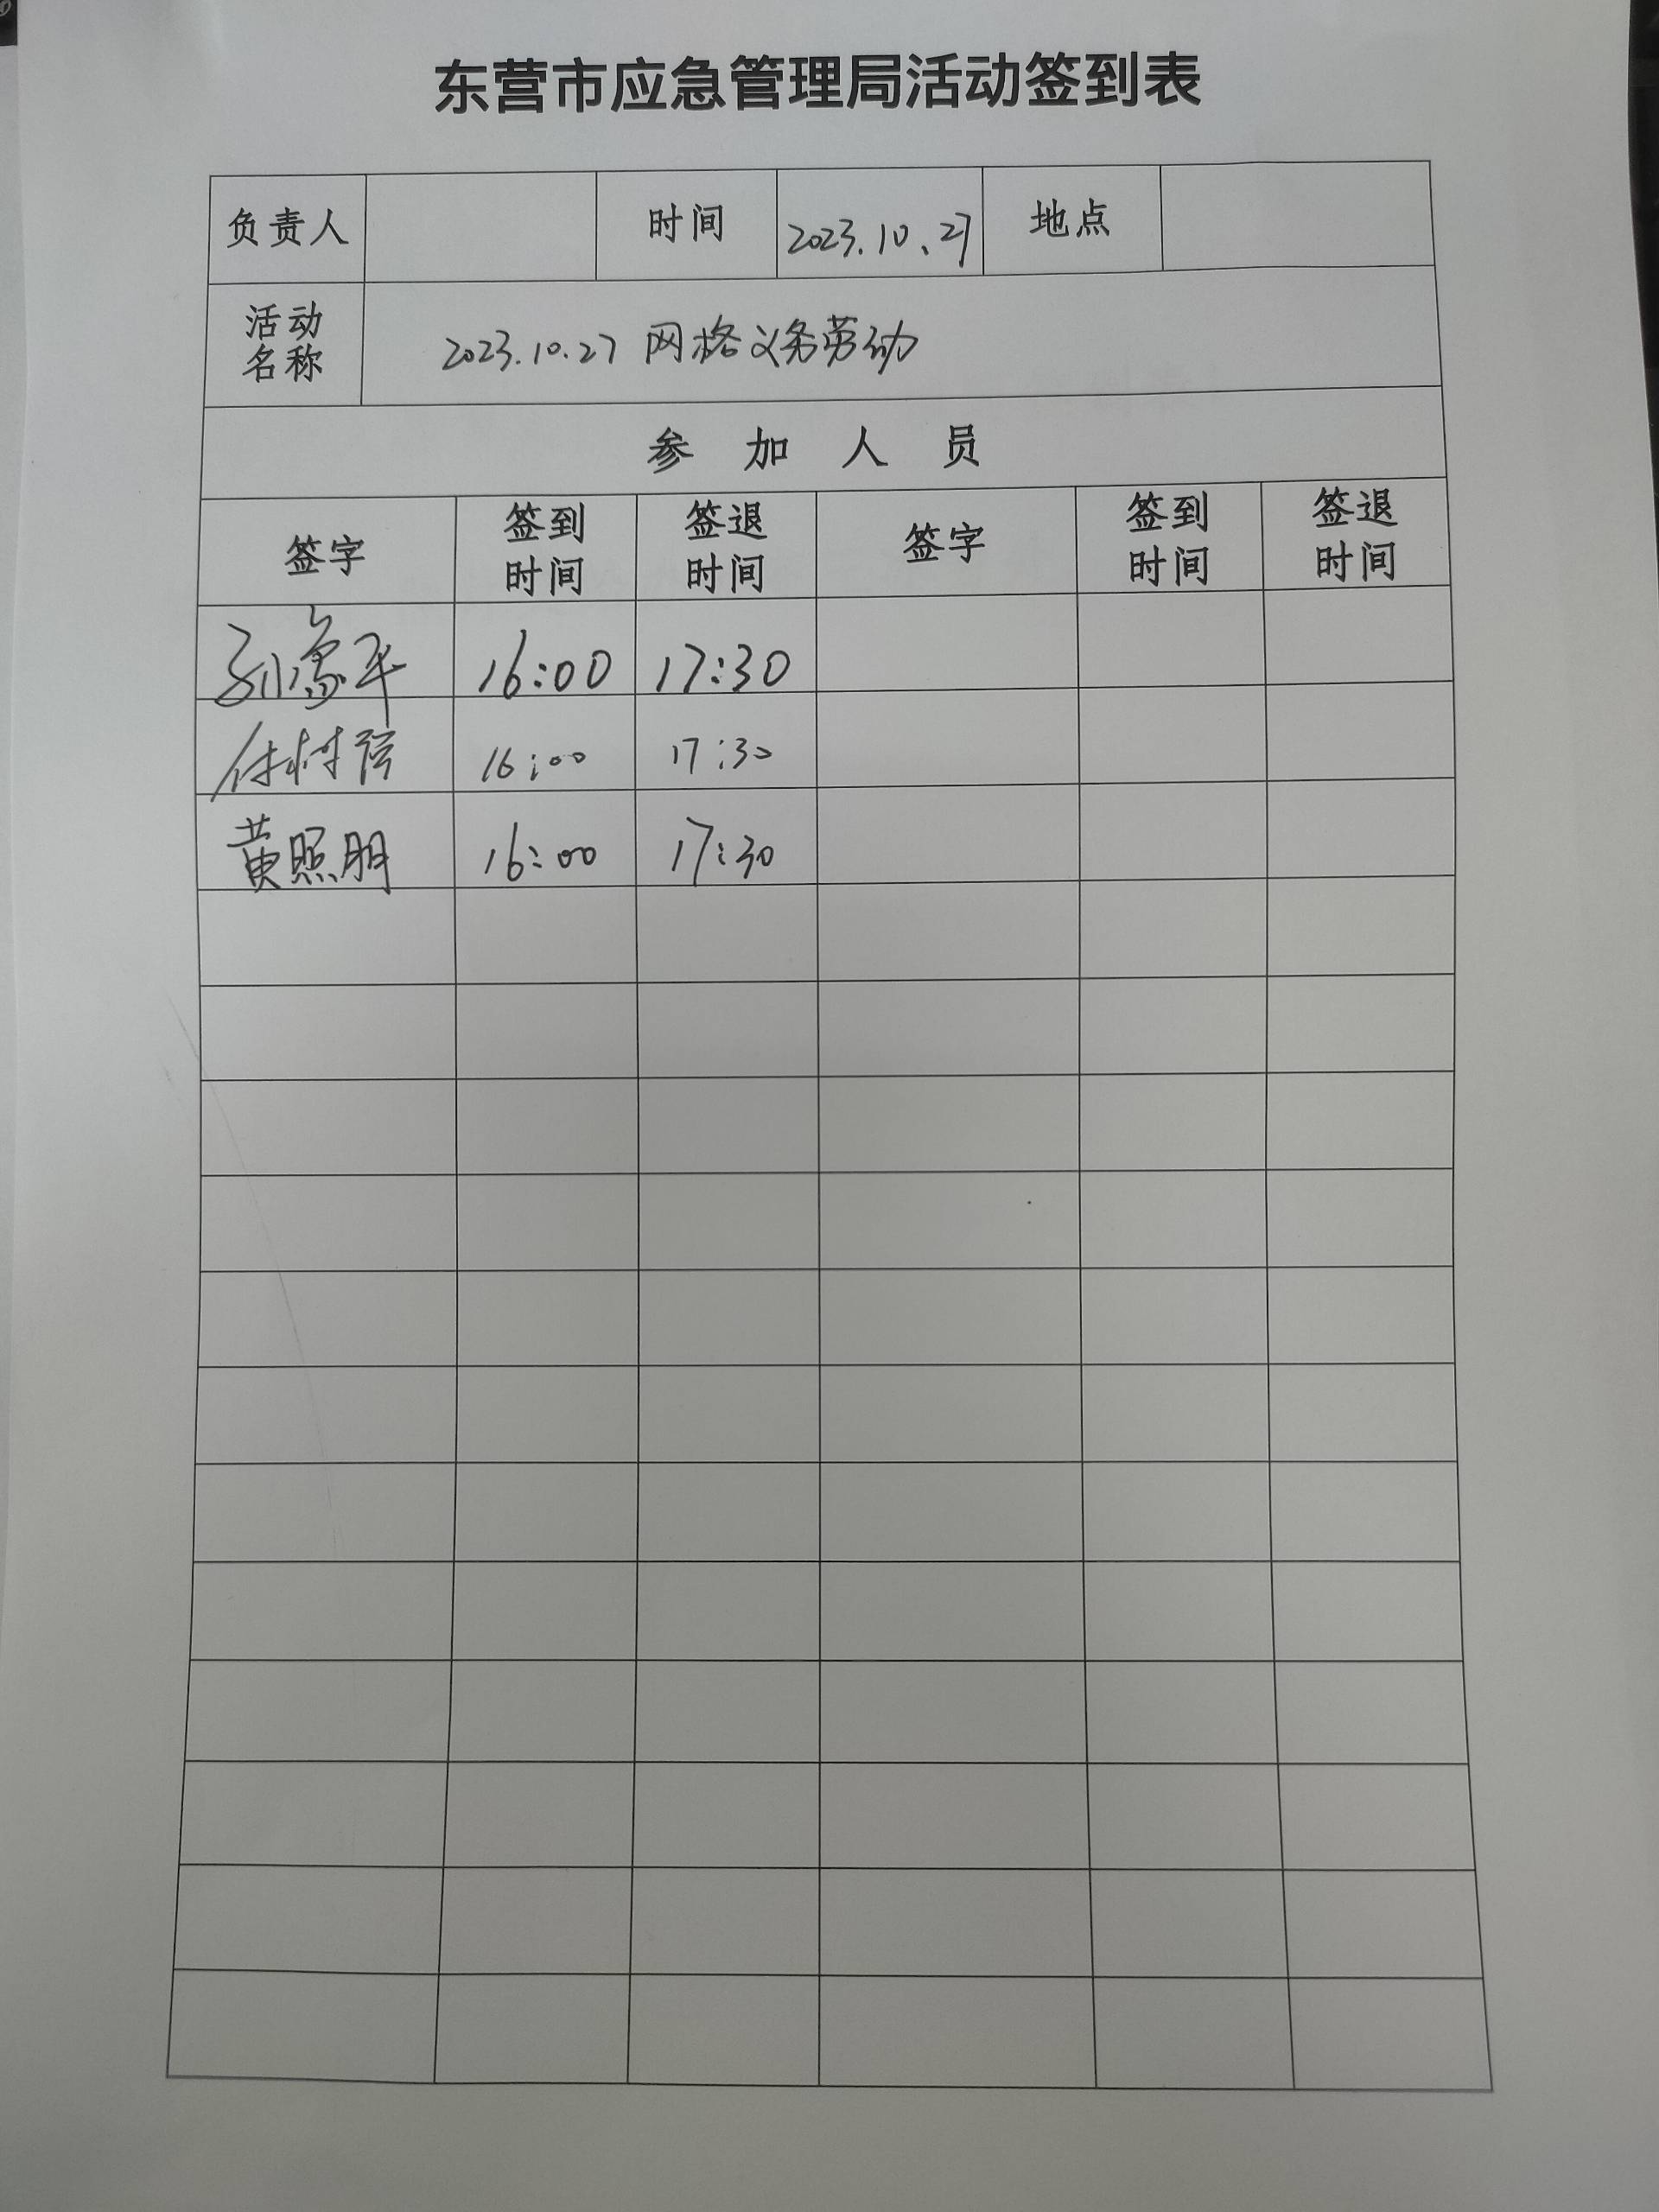 东营市应急管理局活动签到表
负责人 时间 2023.10.27 地点
活动名称 2023.10.27 网格义务劳动
参加人员
签字 签到时间 签退时间 签字 签到时间 签退时间
16:00 17:30
16:00 17:30
黄照明 16:00 17:30